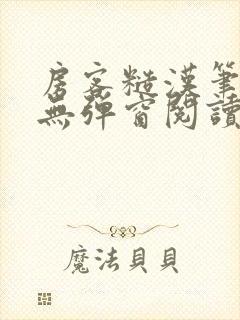 房客糙漢筆
無彈窗閱讀
魔法貝貝